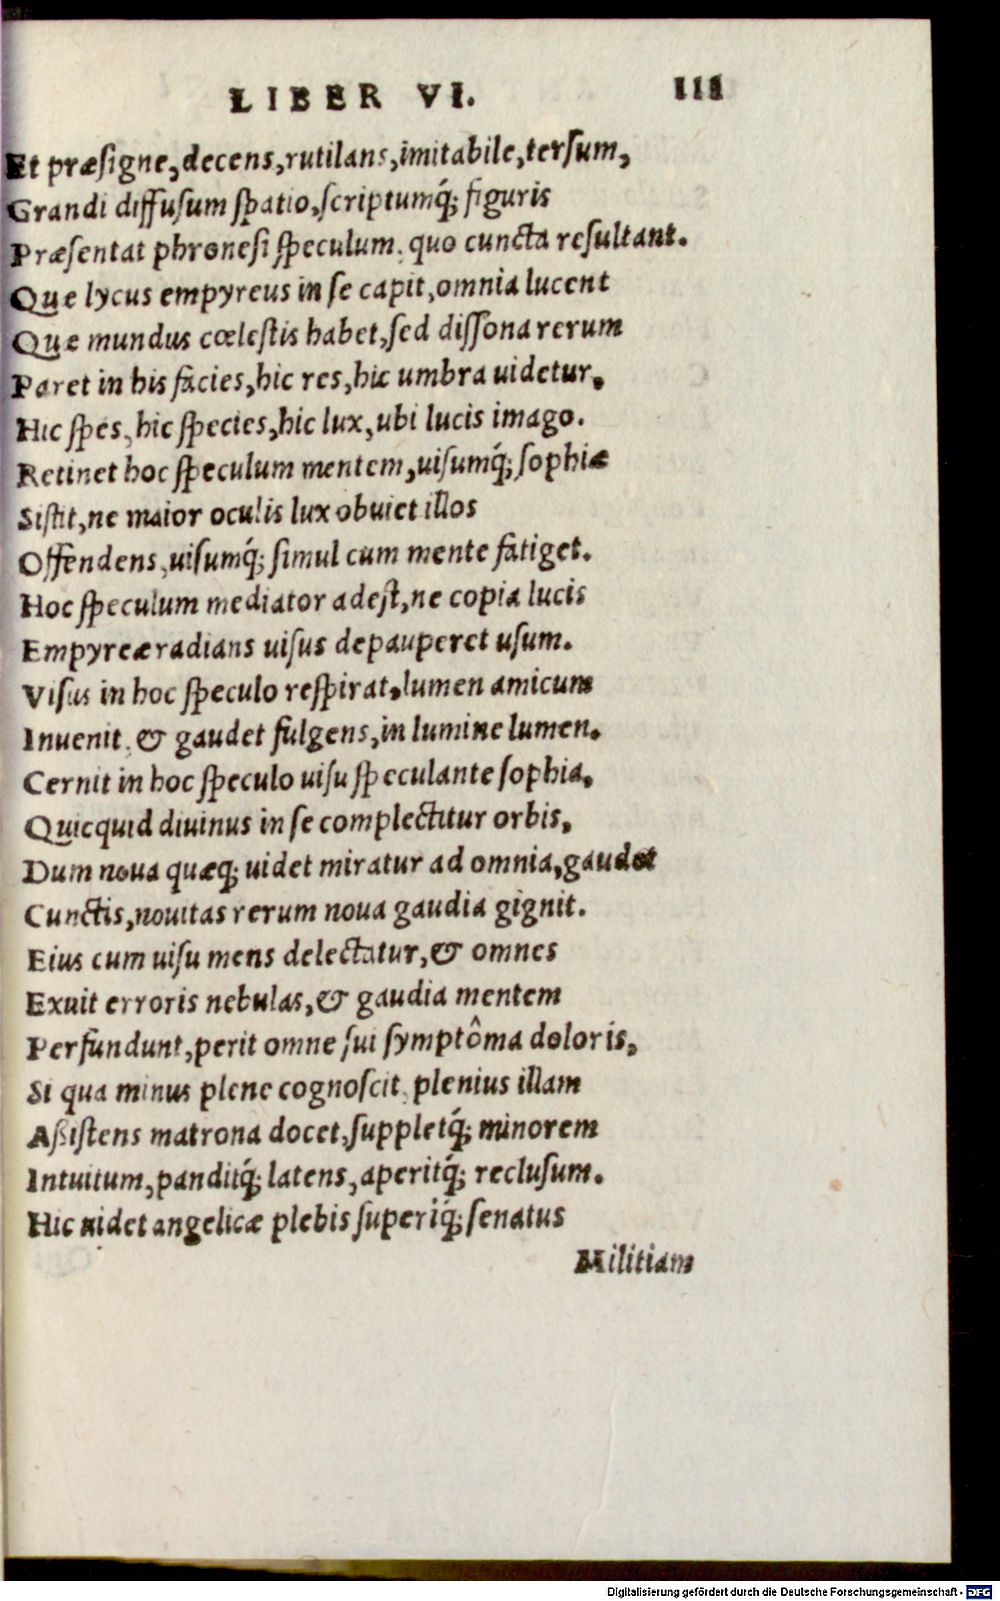 LIBER VI. 111
Et præſigne, decens, rutilans, imitabile, terſum,
Grandi diffuſum ſpatio, ſcriptumq́; figuris
Præſentat phroneſi ſpeculum, quo cuncta reſultant.
Que lycus empyreus in ſe capit, omnia lucent
Que mundus cœleſtis habet, ſed diſſona rerum
Paret in his facies, hic res, hic umbra uidetur,
Hic ſpes, hic ſpecies, hic lux, ubi lucis imago.
Retinet hoc ſpeculum mentem, uiſumq́; ſophiæ
Siſtit, ne maior oculis lux obuiet illos
Offendens, uiſumq́; ſimul cum mente fatiget.
Hoc ſpeculum mediator adeſt, ne copia lucis
Empyreæ radians uiſus depauperet uſum.
Viſus in hoc ſpeculo reſpirat, lumen amicum
Inuenit, & gaudet fulgens, in lumine lumen.
Cernit in hoc ſpeculo uiſu ſpeculante ſophia,
Quicquid diuinus in ſe complectitur orbis,
Dum noua quæq; uidet miratur ad omnia, gaudet
Cunctis, nouitas rerum noua gaudia gignit.
Eius cum uiſu mens delectatur, & omnes
Exuit erroris nebulas, & gaudia mentem
Perfundunt, perit omne ſui ſymptôma doloris,
Si qua minus plene cognoſcit, plenius illam
Aßiſtens matrona docet, ſuppletq́; minorem
Intuitum, panditq́; latens, aperitq́; recluſum.
Hic uidet angelicæ plebis ſuperiq́; ſenatus
Militiam
Digitalisierung gefördert durch die Deutsche Forschungsgemeinschaft - DFG